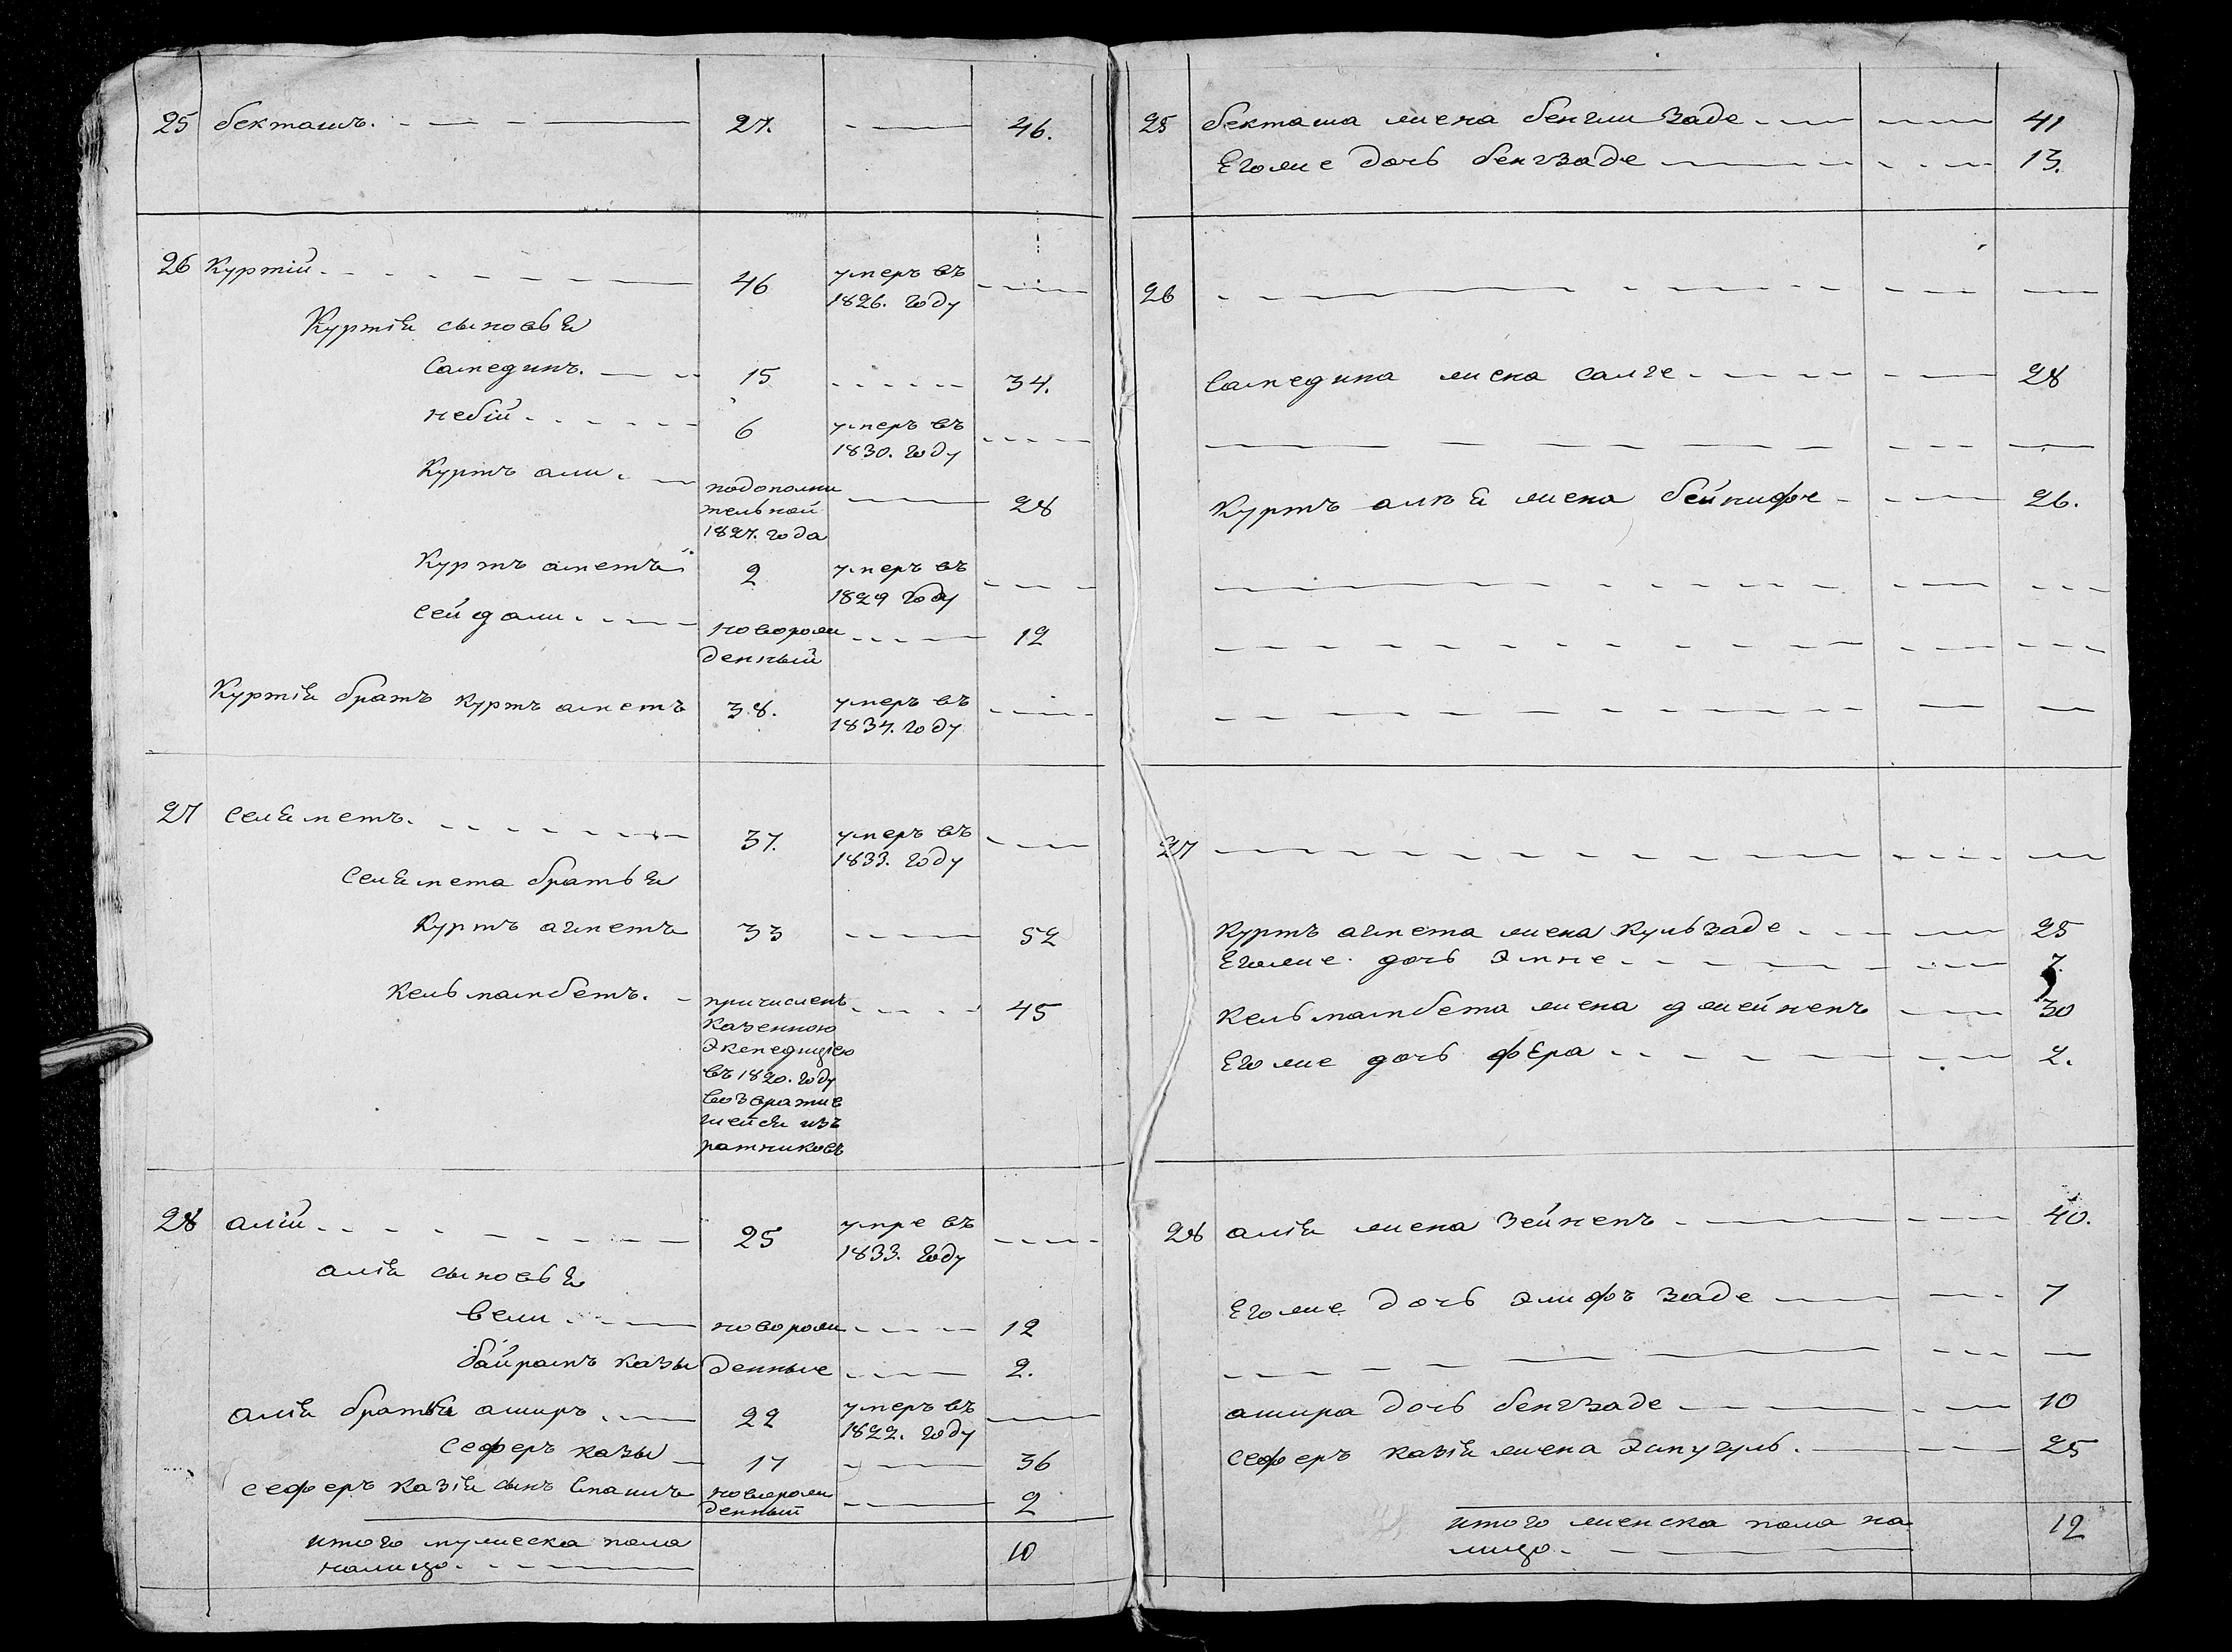 25 бекташъ. 27. 46.
26 Куртій 46 умеръ въ
1826. году
Куртія сыновья
Самединъ. 15 34.
небій 6 умеръ въ
1830. году
Куртъ али подополни
тельной 28
1827. года
Куртъ аметъ 2 умеръ въ
1829 году
сейдали новорож 12
денный
Куртія братъ куртъ аметъ 38. умеръ въ
1834. году
27 селяметъ. 37. умеръ въ
1833. году
Селямета братья
Куртъ агметъ 33 52
Кельмамбетъ. причисленъ 45
Казенною
Экспедиціею
въ 1820. году
возвратив
шейся изъ
ратниковъ
28 алій 25 умре въ
1833. году
алія сыновья
вели новорож 12
байрамъ казы денные 2.
алія братья аширъ 22 умеръ въ
1822. году
сеферъ казы 17 36
сеферъ казія сынъ новорож 2
денный
итого мужеска пола
налицо. 10
25 бекташа жена бенгли заде 41
Его же дочь бенгзаде 13.
26
Самедина жена салге 28
Куртъ алія жена 26.
27
Куртъ агмета жена Кульзаде 25
Его же дочь Эмне 7.
Кельмамбета жена джейнепъ 30
Его же дочь фера 2.
28 алія жена Зейнепъ 40.
Его же дочь элифъ заде 7
ашира дочь бенгзаде 10
сеферъ казія жена 25
итого женска пола на
лицо. 12